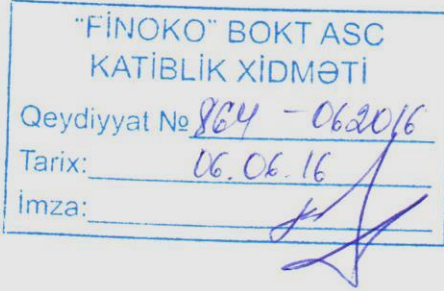 "FİNOKO" BOKT ASC
KATİBLİK XİDMƏTİ
Qeydiyyat № 864 - 062016
Tarix: 06.06.16
İmza: